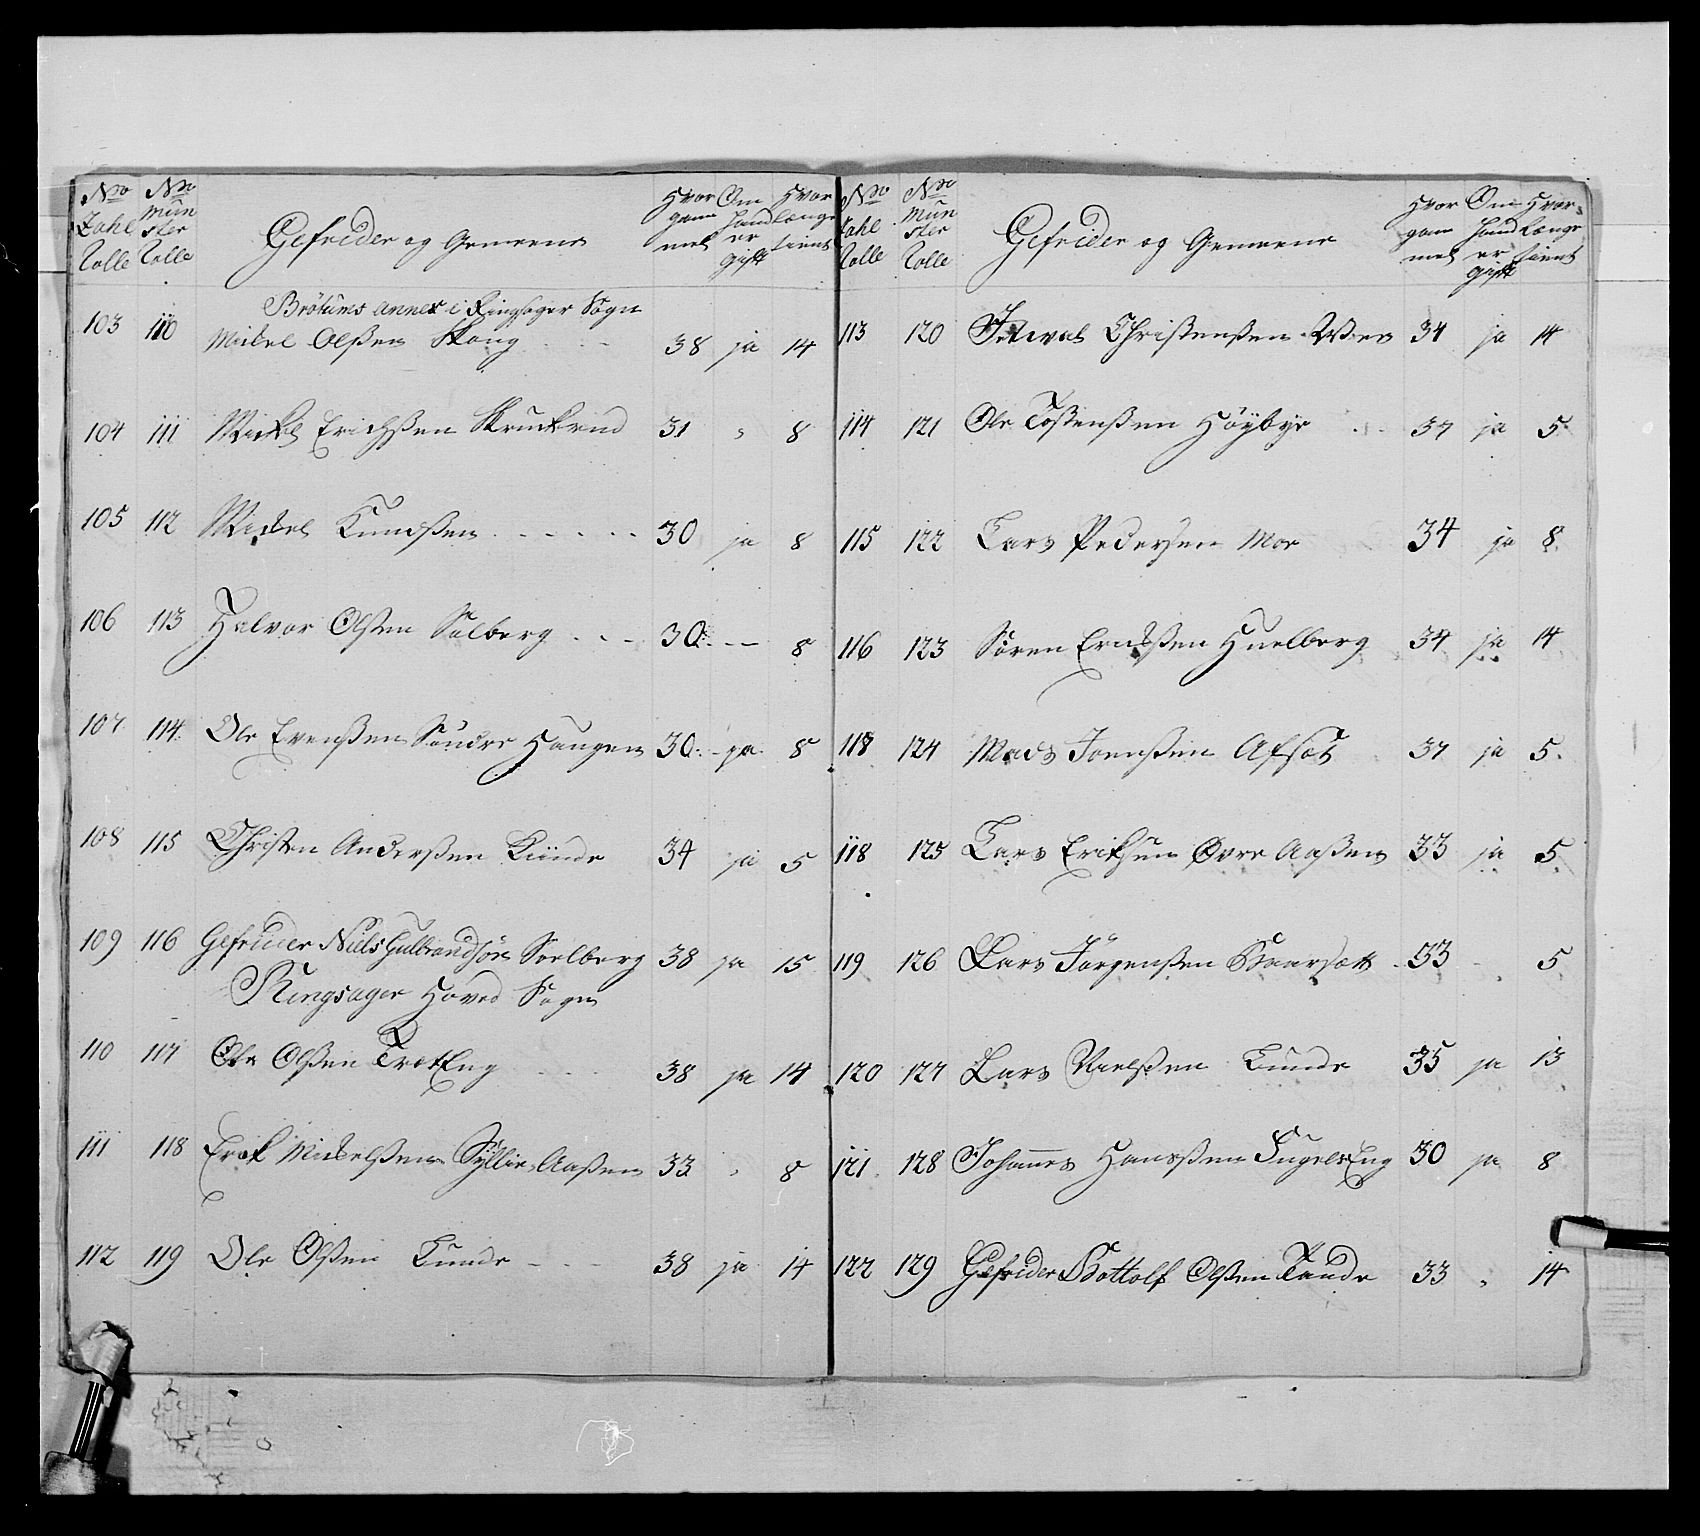 No Zahl Rolle | No Mün ster Rolle | Gefreider og Gemeene | Hvor gam mel | Om hand er gift | Hvor længe tient
Brötums annex i Ringsager Sogn
103 110 Mickel Olßen Skoug 38 ja 14
104 111 Mickel Erichßen Skruckrud 31 " 8
105 112 Mickel Knudßen 30 ja 8
106 113 Halvor Olßen Solberg 30 — 8
107 114 Ole Evenßen Søndre Haugen 30 ja 8
108 115 Christen Anderßen Lunde 34 ja 5
109 116 Gefreider Niels Gulbrandsøn Soelberg 38 ja 15
Ringsager Hoved Sogn
110 117 Ole Olßen TrætEng 38 ja 14
111 118 Erik Mickelßen Aaßen 33 " 8
112 119 Ole Olßen Lunde 38 ja 14
No Zahl Rolle | No Mün ster Rolle | Gefreider og Gemeene | Hvor gam mel | Om hand er gift | Hvor længe tient
113 120 Christenßen 34 ja 14
114 121 Ole Toßtenßen Höybye 37 ja 5
115 122 Lars Pedersen Moe 34 ja 8
116 123 Søren Erickßen Huelberg 34 ja 14
118 124 Mads Joenßen Afsæt 37 ja 5
118 125 Lars Eriksen Øvre Aaßen 33 ja 5
119 126 Lars Jörgenßen 33 - 5
120 127 Lars Nielßen Lunde 35 ja 13
121 128 Johannes Hansßen FugelsEng 30 ja 8
122 129 Gefreider Bottolf Olßen Taude 33 " 14